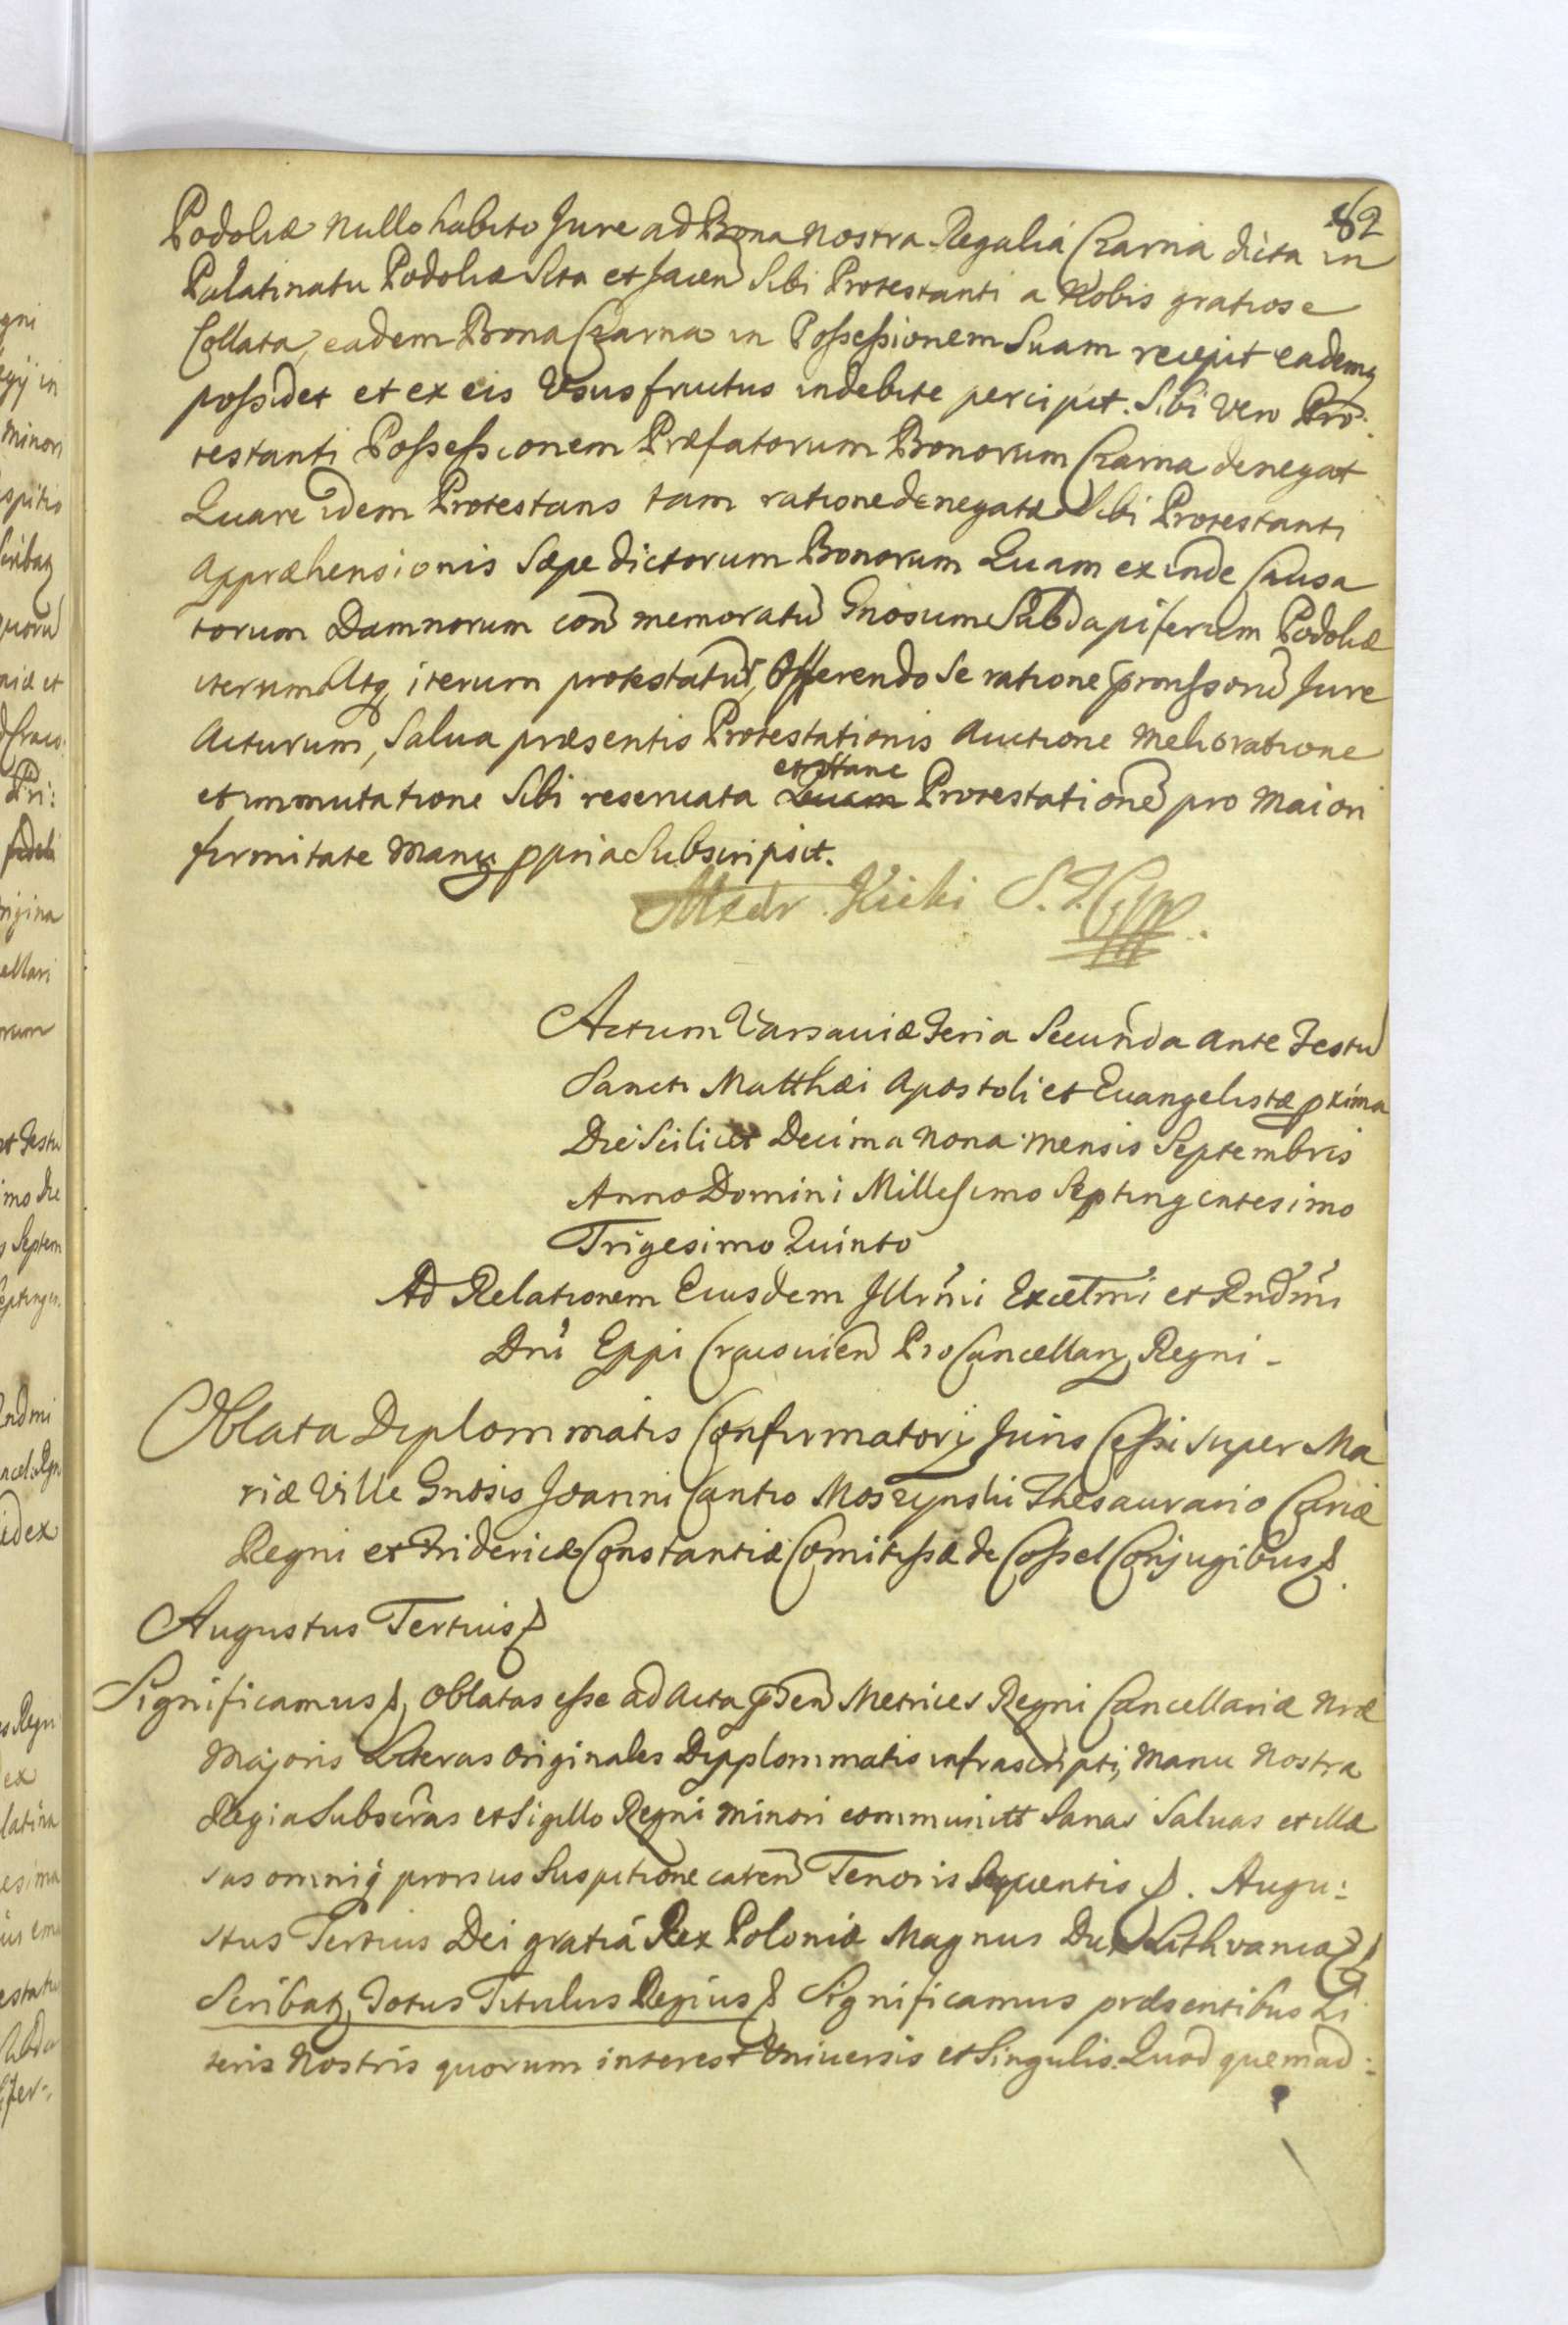 82
Podoliæ nullo habito Jure ad Bona nostra Regalia Czarna dicta in
Palatinatu Podoliæ Sita et Jacen Sibi Protestanti a Nobis gratiose
Collata, eadem Bona Czarna in Possessionem Suam recepit eademq
possidet et ex eis Ususfructus indebite percipit. Sibi Vero Pro:
testanti Possessionem Præfatorum Bonorum Czarna denegat
Quare idem Protestans tam ratione denegatæ Sibi Protestanti
Appræhensionis Sæpe dictorum Bonorum Quam exinde Causa
torum Damnorum con memoratũ Gnosum Subdapiferum Podoliæ
iterum Atq iterum protestatur, Offerendo Se ratione præmissorũ Jure
Acturum, Salua præsentis Protestationis Auctione Melioratione
et Hanc
et immutatione Sibi reseruata Quam Protestationẽ pro Maiori
firmitate Manu ppria Subscripsit.
Kicki
Actum Varsauiæ Feria Secunda ante Festũ
Sancti Matthæi Apostoli et Euangelistæ pxima
Die Scilicet Decima Nona mensis Septembris
Anno Domini Millesimo Septingentesimo
Trigesimo Quinto
Ad Relationem Eiusdem Illrmi Excellmi et Rndmi
Dni Eppi Cracouien ProCancellarij Regni -
Oblata Diplommatis Confirmatorij Juris Cessi super Ma
riæ Ville Gnosis Joanni Cantio Moszynski Thesaurario Curiæ
Regni et Fridericæ Constantiæ Comitissæ de Cossel Conjugibus
Augustus Tertius
Significamus, Oblatas esse ad Acta pnsen Metrices Regni Cancellariæ Nræ
Majoris Literas Originales Dipplommatis infrascripti, Manu Nostra
Regia Subscras et Sigillo Regni Minori communitt Sanas Saluas et illæ
sas omniq prorsus Suspitione caren Tenoris Sequentis. Augu:
stus Tertius Dei gratiâ Rex Poloniæ Magnus Dux Lithvaniæ
Scribatz Totus Titulus Regius Significamus præsentibus Li
teris Nostris quorum interest Uniuersis et Singulis. Quod quemad: